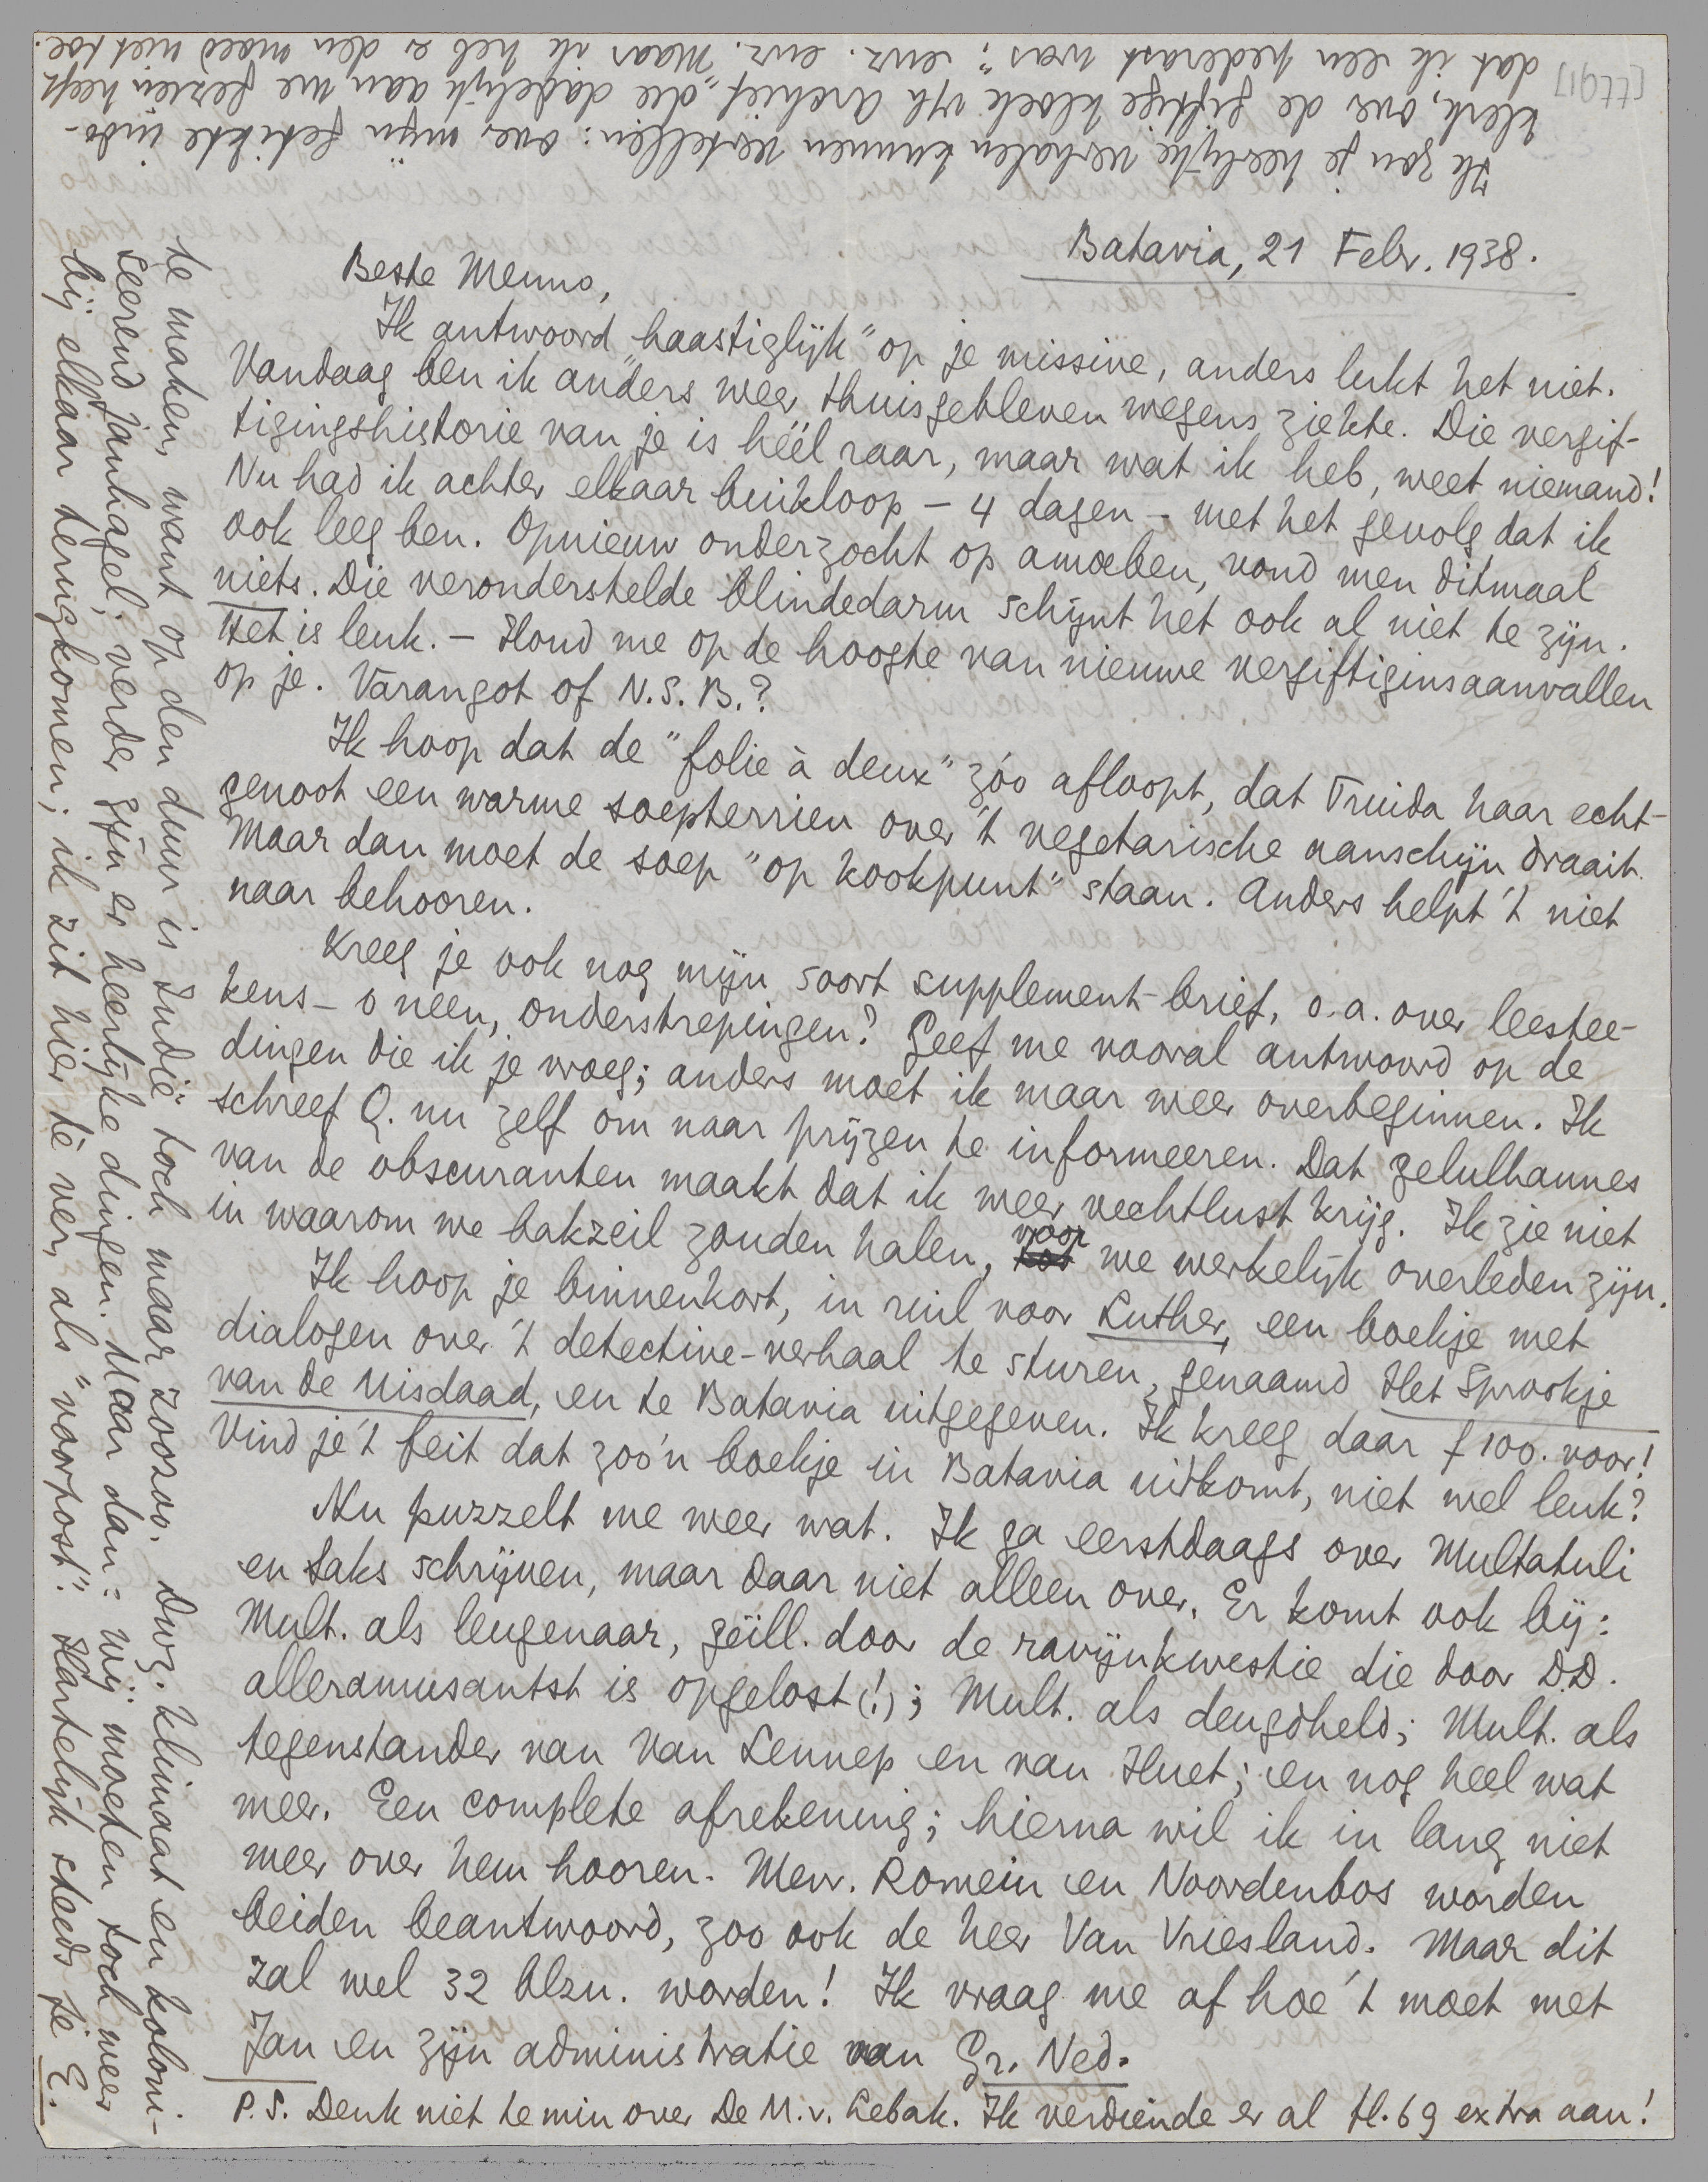 Batavia, 21 Febr. 1938.
Beste Menno,
Ik antwoord "haastiglijk" op je missive, anders lukt het niet.
Vandaag ben ik anders weer thuisgebleven wegens ziekte. Die vergif-
tigingshistorie van je is héél raar, maar wat ik heb, weet niemand!
Nu had ik achter elkaar buikloop – 4 dagen – met het gevolg dat ik
ook leeg ben. Opnieuw onderzocht op amoeben, vond men ditmaal
niets. Die veronderstelde blindedarm schijnt het ook al niet te zijn.
Het is leuk. – Houd me op de hoogte van nieuwe vergiftiginsaanvallen
op je. Varangot of N.S.B.?
Ik hoop dat de "folie à deux" zóo afloopt, dat Truida haar echt-
genoot een warme soepterrien over 't vegetarische aanschijn draait.
Maar dan moet de soep "op kookpunt" staan. Anders helpt 't niet
naar behooren.
Kreeg je ook nog mijn soort supplement-brief, o.a. over leestee-
kens – o neen, onderstrepingen? Geef me vooral antwoord op de
dingen die ik je vroeg; anders moet ik maar weer overbeginnen. Ik
schreef Q. nu zelf om naar prijzen te informeeren. Dat gelulhannes
van de obscuranten maakt dat ik weer vechtlust krijg. Ik zie niet
in waarom we bakzeil zouden halen, voor we werkelijk overleden zijn.
Ik hoop je binnenkort, in ruil voor Luther, een boekje met
dialogen over 't detective-verhaal te sturen, genaamd Het Sprookje
van de Misdaad, en te Batavia uitgegeven. Ik kreeg daar f 100. voor!
Vind je 't feit dat zoo'n boekje in Batavia uitkomt, niet wel leuk?
Nu puzzelt me weer wat. Ik ga eerstdaags over Multatuli
en Saks schrijven, maar daar niet alleen over. Er komt ook bij:
Mult. als leugenaar, geïll. door de ravijnkwestie die door D.D.
alleramusantst is opgelost (!); Mult. als deugdheld; Mult. als
tegenstander van Van Lennep en van Huet; en nog heel wat
meer. Een complete afrekening; hierna wil ik in lang niet
meer over hem hooren. Mevr. Romein en Noordenbos worden
beiden beantwoord, zoo ook de heer Van Vriesland. Maar dit
zal wel 32 blzn. worden! Ik vraag me af hoe 't moet met
Jan en zijn administratie van Gr. Ned.
P.S. Denk niet te min over De M. v. Lebak. Ik verdiende er al fl. 69 extra aan!
Ik zou je heerlijke verhalen kunnen vertellen: over mijn getikte indo-
klerk, over de giftige kloek v/h Archief die "dadelijk aan me gezien heeft
dat ik een pederast was"; enz. enz. Maar ik heb er den moed niet toe.
te maken, want op den duur is Indië toch maar zoozoo. Dwz. klimaat en koloni-
seerend Janhagel; verder zijn er heerlijke dingen. Maar dan: wij moeten toch weer
bij elkaar terugkomen; ik zit hier te ver, als "voorpost". Hartelijk steeds je E.